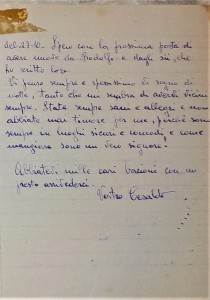 del 27-10- Spero con la prossima posta di
avere nuove da Rodolfo e dagli zii, che
ho scritto loro.
Vi penso sempre e spessissimo vi sogno di
notte, tanto che mi sembra di avervi vicini
sempre. State sempre sani e allegri e non
abbiate mai timore per me, perché sono
sempre in luoghi sicuri e comodi, e come
mangiare sono un vero signore.
Abbiatevi mille cari bacioni con un
presto arrivederci.
Vostro